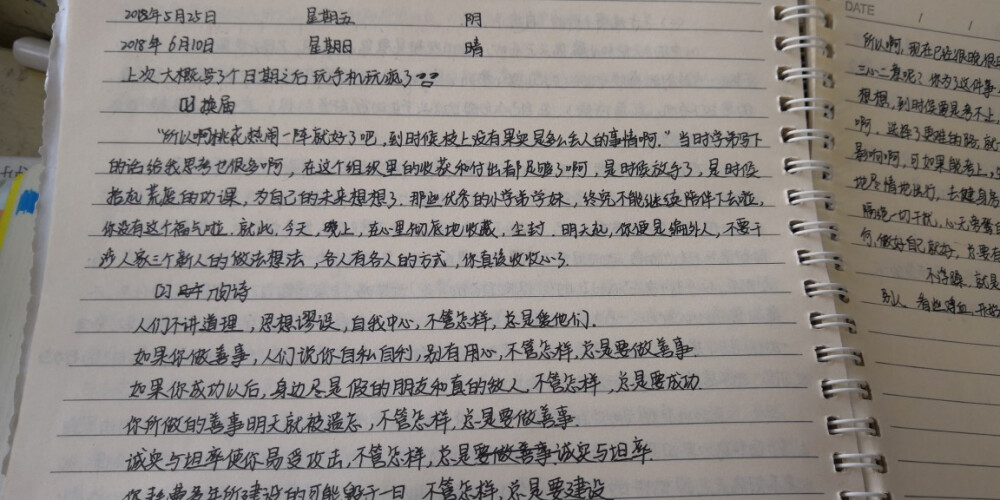 2018年5月25日 星期五 阴
2018年6月10日 星期日 晴
上次大概写了个日期之后玩手机玩疯了??
口换届
"所以啊桃花热闹一阵就好了吧,到时候枝上没有果实是多么丢人的事情啊."当时学弟写下
的话给我思考也很多啊,在这个组织里的收获和付出都足够了啊,是时候放手了,是时候
拾起荒废的功课,为自己的未来想想了.那些优秀的小学弟学妹,终究不能继续陪伴下去啦,
你没有这个福气啦.就此,今天,晚上,在心里彻底地收藏,尘封.明天起,你便是编外人,不要干
涉人家三个新人的做法想法,各人有各人的方式,你真该收收心了.
人们不讲道理,思想谬误,自我中心,不管怎样,总是爱他们.
如果你做善事,人们说你自私自利,别有用心,不管怎样,总是要做善事.
如果你成功以后,身边尽是假的朋友和真的敌人,不管怎样,总是要成功
你所做的善事明天就被遗忘,不管怎样,总是要做善事.
诚实与坦率使你易受攻击,不管怎样,总是要做善事.诚实与坦率.
你耗费多年所建设的可能毁于一日,不管怎样,总是要建设
DATE / /
所以啊,现在已经很晚很
三心二意呢?你为了这件事
想想,到时候要是考不上,
啊.选择了更难的路,就
影响啊,可如果能考上,
地尽情地出行,去健身房
隔绝一切干扰,心无旁骛
何,做好自己就好,总要有
不浮躁.就是